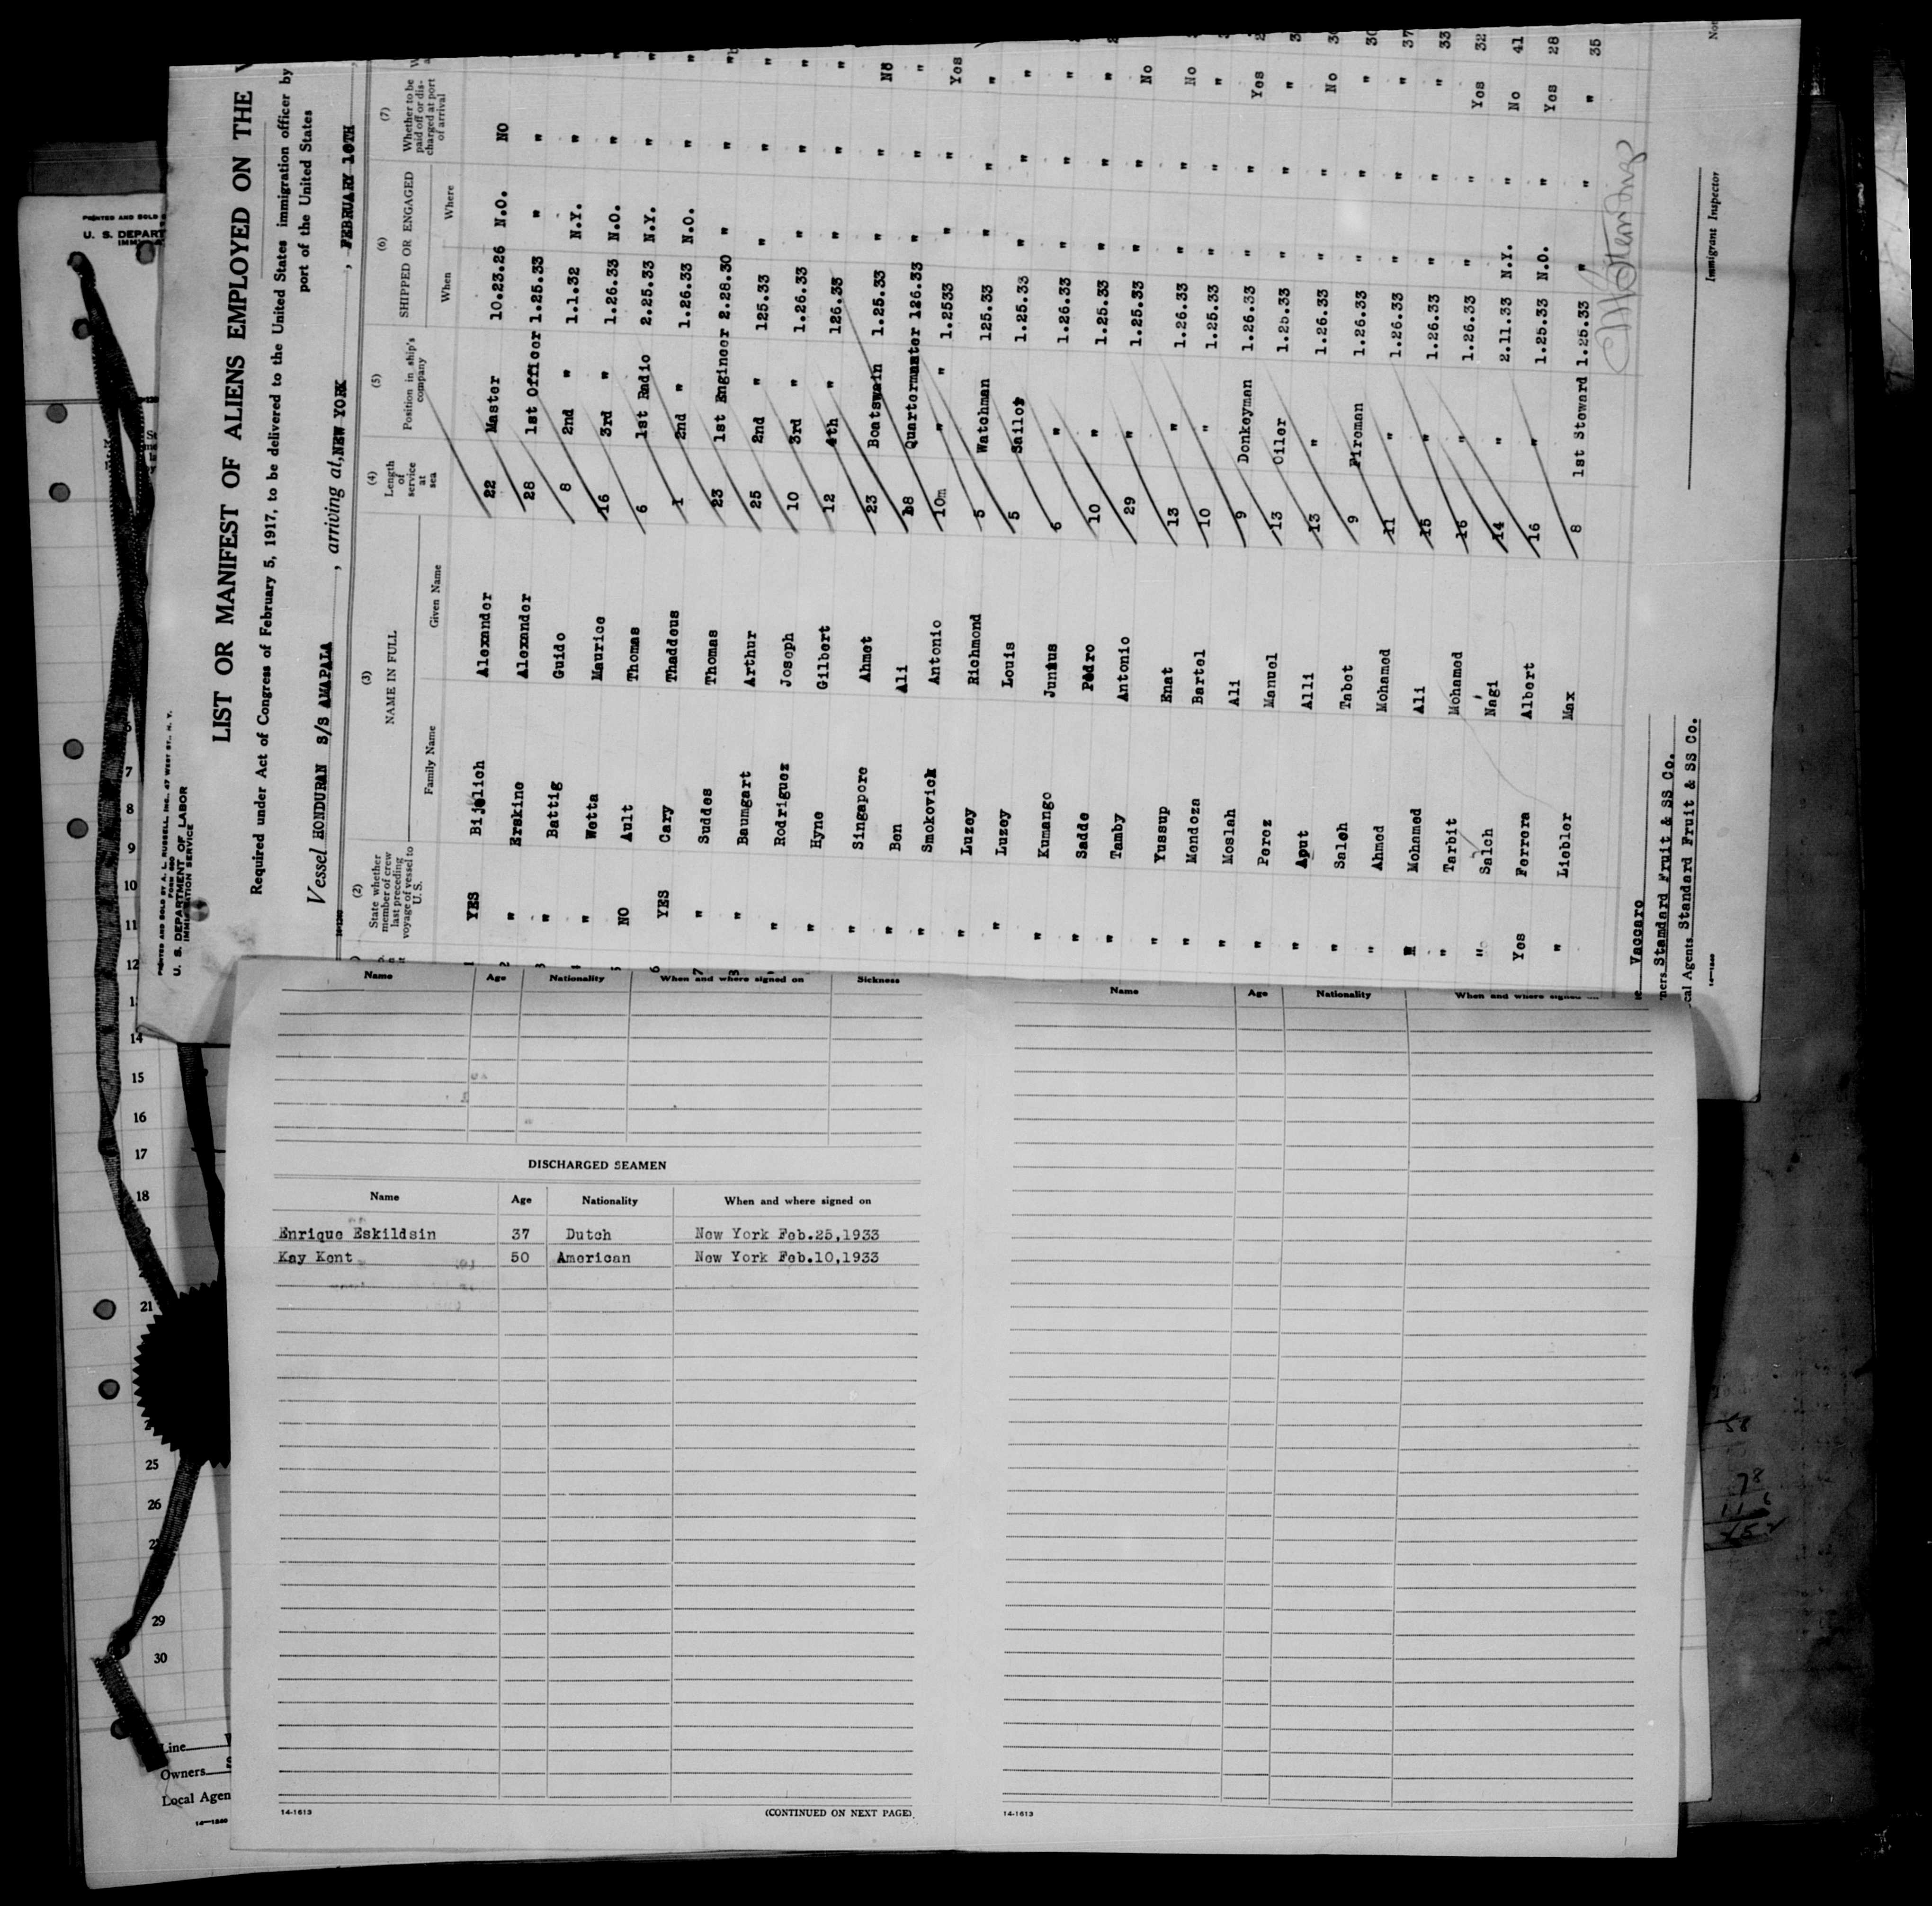 PRINTED AND SOLD BY A. L. RUSSELL, INC., 47 WEST ST., N. Y.
FORM 680
U. S. DEPARTMENT OF LABOR
IMMIGRATION SERVICE
LIST OR MANIFEST OF ALIENS EMPLOYED ON THE
Required under Act of Congress of February 5, 1917, to be delivered to the United States immigration officer by
port of the United States
Vessel HONDURAN S/S AMAPALA, arriving at, NEW YORK, FEBRUARY 10TH
(2) (3) (4) (5) (6) (7)
State whether member of crew last preceding voyage of vessel to U. S.
NAME IN FULL
Family Name Given Name
Length of service at sea
Position in ship's company
SHIPPED OR ENGAGED
When Where
Whether to be paid off or discharged at port of arrival
1 YES Bijelich Alexander 22 Master 10.23.26 N.O. NO
2 " Erskine Alexander 28 1st Officer 1.25.33 " "
3 " Battig Guido 8 2nd " 1.1.32 N.Y. "
4 " Wetta Maurice 16 3rd " 1.26.33 N.O. "
5 NO Ault Thomas 6 1st Radio 2.25.33 N.Y. "
6 YES Cary Thaddeus 1 2nd " 1.26.33 N.O. "
7 " Suddes Thomas 23 1st Engineer 2.28.30 " "
8 " Baumgart Arthur 25 2nd " 125.33 " "
" Rodriguez Joseph 10 3rd " 1.26.33 " "
" Hyne Gilbert 12 4th " 126.33 " "
" Singapore Ahmet 23 Boatswain 1.25.33 " " No
" Ben Ali 18 Quartermaster 126.33 " " "
" Smokovick Antonio 10m " 1.2533 " " Yes
" Luzey Richmond 5 Watchman 125.33 " " "
" Luzey Louis 5 Sailor 1.25.33 " " "
" Kumango Junius 6 " 1.26.33 " " "
" Sadde Pedro 10 " 1.25.33 " " "
" Tamby Antonio 29 " 1.25.33 " " No
" Yussup Enat 13 " 1.26.33 " " No
" Mendoza Bartel 10 " 1.25.33 " " "
" Moslah Ali 9 Donkeyman 1.26.33 " " Yes
" Perez Manuel 13 Oiler 1.25.33 " " "
" Aput Alli 13 " 1.26.33 " " No
" Saleh Tabet 9 Fireman 1.26.33 " " "
" Ahmed Mohamed 11 " 1.26.33 " " " 37
" Mohamed Ali 15 " 1.26.33 " " " 33
" Tarbit Mohamed 16 " 1.26.33 " " Yes 32
" Saleh Nagi 14 " 2.11.33 N.Y. " No 41
Yes Ferrera Albert 16 " 1.25.33 N.O. " Yes 28
" Liebler Max 8 1st Steward 1.25.33 " " " 35
Immigrant Inspector
Vaccaro
Standard Fruit & SS Co.
Agents Standard Fruit & SS Co.
14—1240
PRINTED AND SOLD
U. S. DEPART
7
8
9
10
11
12
14
15
16
17
18
21
25
26
29
30
Line
Owners
Local Agen
14—1240
Name Age Nationality When and where signed on Sickness
DISCHARGED SEAMEN
Name Age Nationality When and where signed on
Enrique Eskildsin 37 Dutch New York Feb.25,1933
Kay Kent 50 American New York Feb.10,1933
14-1613 (CONTINUED ON NEXT PAGE)
Name Age Nationality When and where signed on
14-1613
58
78